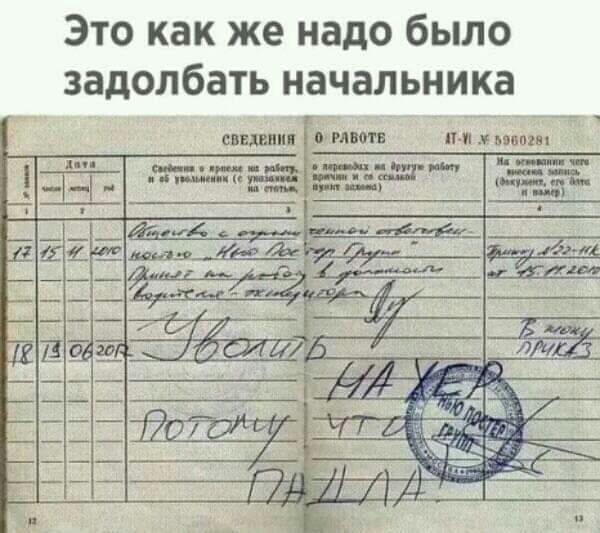 Это как же надо было
задолбать начальника
СВЕДЕНИЯ О РАБОТЕ
AT-VI № 5960281
Дата
Сведения о приеме на работу, о переводах на другую работу
и об увольнении (с указанием причин и со ссылкой
на статью, пункт закона)
На основании чего
внесена запись
(документ, его дата
и номер)
№ записи
число месяц год
1 2 3 4
Общество с ограниченной ответствен-
ностью „Нью Постер Групп"
17 15 11 2010 Принят на работу в должности
водителя-экспедитора
Приказ №22-НК
от 15.11.2010
18 19 06 2012 Уволить НА ХЕР
В жопу
ПРИКАЗ
Потому ЧТО
ПАДЛА!
НЬЮ ПОСТЕР
ГРУПП
12 13